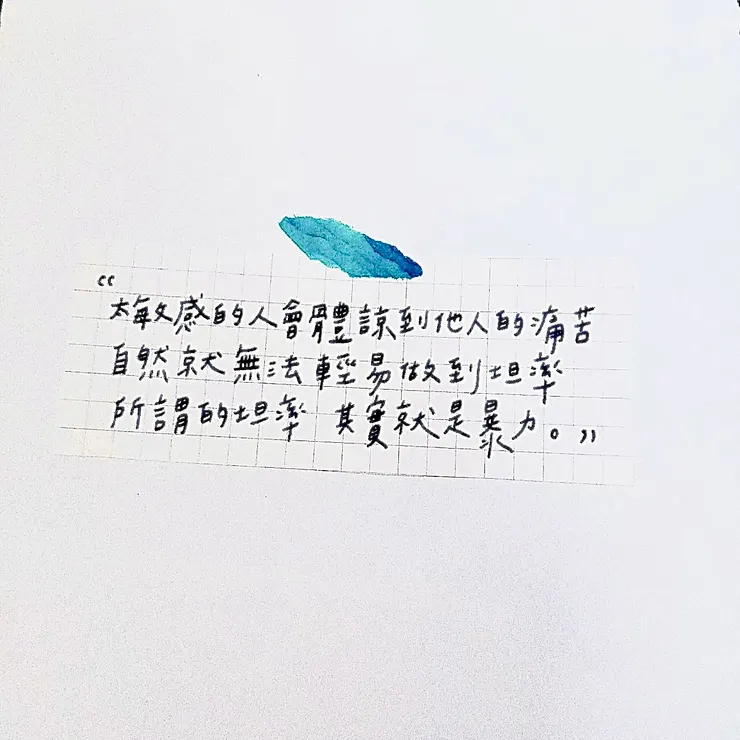 “
太敏感的人會體諒到他人的痛苦
自然就無法輕易做到坦率
所謂的坦率 其實就是暴力。”